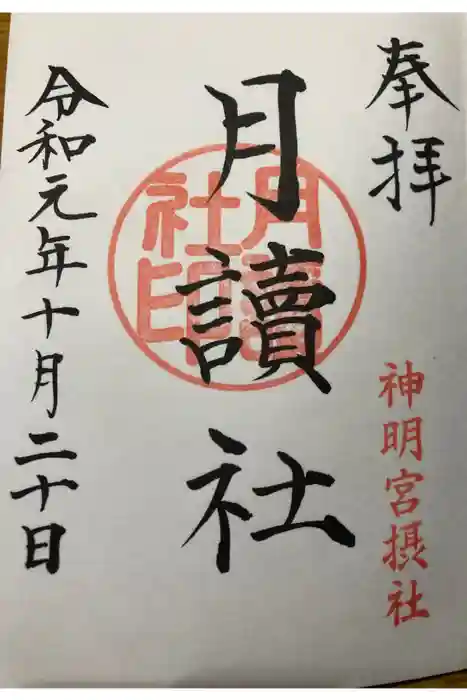 奉拝
神明宮摂社
月讀社
月讀社印
令和元年十月二十日